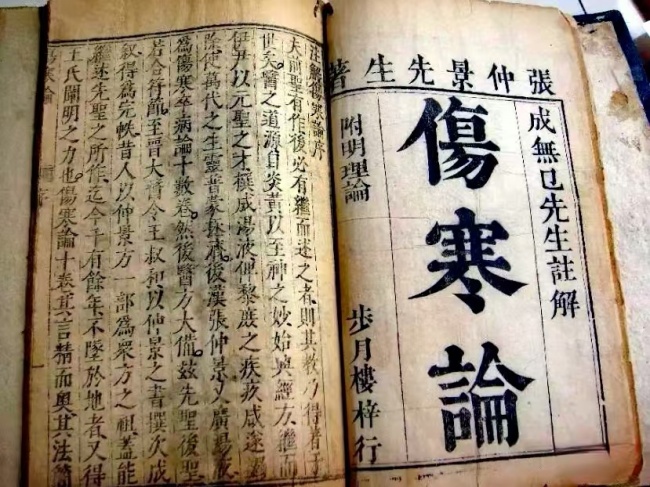 張仲景先生著
成無已先生註解
傷寒論
附明理論
步月樓梓行
注解傷寒論序
夫前聖有作後必有繼而述之者則其教乃得著于
世矣醫之道源自炎黃以至神之妙始興經方繼而
伊尹以元聖之才撰成湯液俾黎庶之疾疚咸遂
除使萬代之生靈普蒙拯濟後漢張仲景又廣湯液
爲傷寒卒病論十數卷然後醫方大備茲先聖後聖
若合符節至晉大醫令王叔和以仲景之書撰次成
敘得爲完帙昔人以仲景方一部爲衆方之祖蓋能
繼述先聖之所作迄今千有餘年不墜於地者又得
王氏闡明之力也傷寒論十卷其言精而奧其法簡
傷寒論